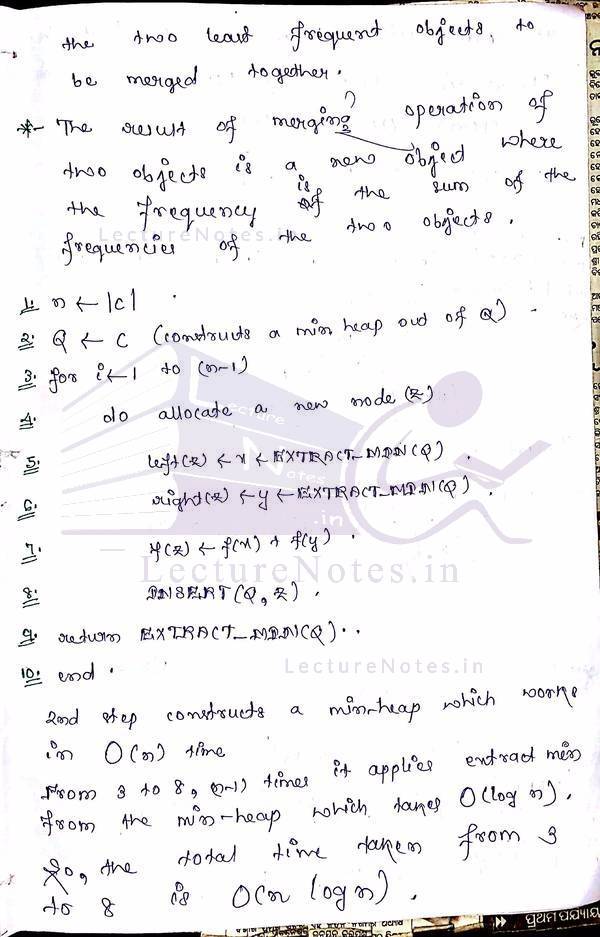 the two least frequent objects, to
be merged together.
*- The result of merging operation of
two objects is a new object where
the frequency is of the sum of the
frequencies of the two objects.
LectureNotes.in
1. n ← |c|
2. Q ← C (constructs a min heap out of Q)
3. for i←1 to (n-1)
4. do allocate a new node (z)
Lecture
Notes
.in
5. left(z) ← x ← EXTRACT_MIN(Q).
6. right(z) ← y ← EXTRACT_MIN(Q).
7. f(z) ← f(x) + f(y).
LectureNotes.in
8. INSERT(Q, z).
9. return EXTRACT_MIN(Q)..
LectureNotes.in
10. end.
2nd step constructs a min-heap which works
in O(n) time
From 3 to 8, (n-1) times it applies extract min
from the min-heap which takes O(log n).
So, the total time taken from 3
to 8 is O(n log n).